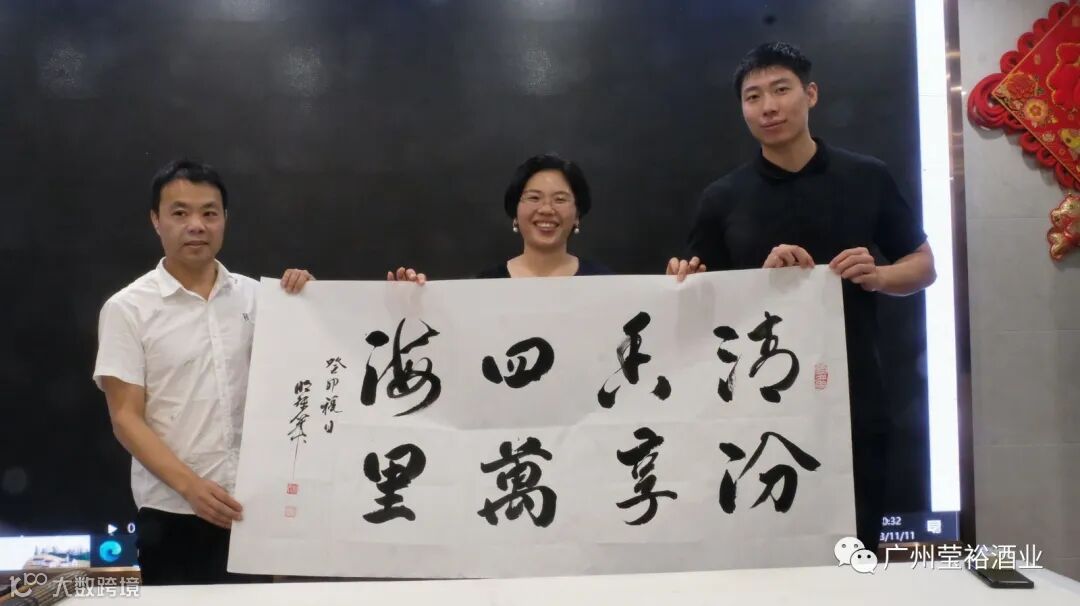 清香四海
汾享萬里
癸卯
0:32
3/11/11
广州莹裕酒业
大数跨境